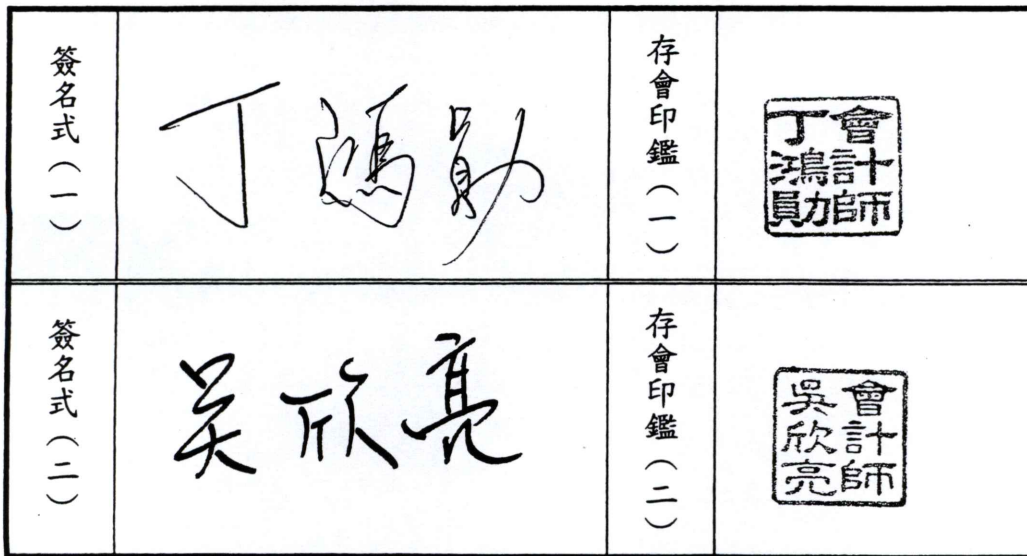 簽名式（一）
丁鴻勛
存會印鑑（一）
會計師
丁鴻勛
簽名式（二）
吳欣亮
存會印鑑（二）
會計師
吳欣亮